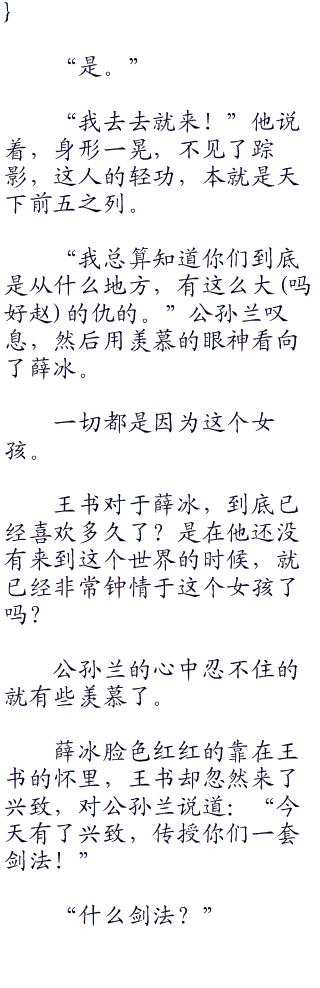 }
“是。”
“我去去就来！”他说
着，身形一晃，不见了踪
影，这人的轻功，本就是天
下前五之列。
“我总算知道你们到底
是从什么地方，有这么大(吗
好赵)的仇的。”公孙兰叹
息，然后用羡慕的眼神看向
了薛冰。
一切都是因为这个女
孩。
王书对于薛冰，到底已
经喜欢多久了？是在他还没
有来到这个世界的时候，就
已经非常钟情于这个女孩了
吗？
公孙兰的心中忍不住的
就有些羡慕了。
薛冰脸色红红的靠在王
书的怀里，王书却忽然来了
兴致，对公孙兰说道：“今
天有了兴致，传授你们一套
剑法！”
“什么剑法？”